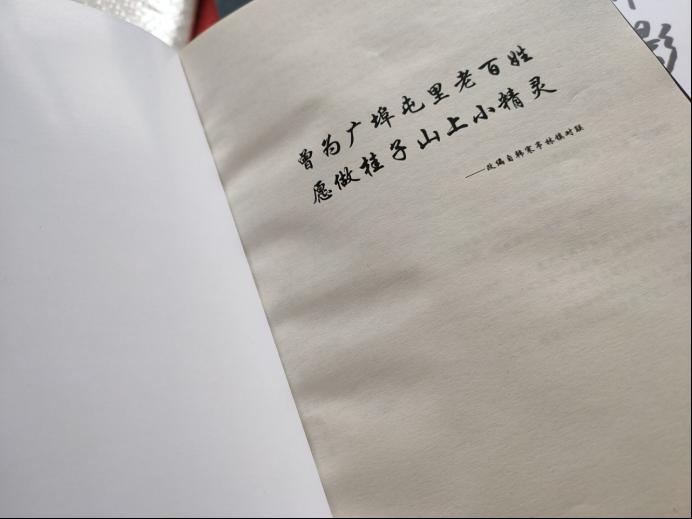 曾为广埠屯里老百姓
愿做桂子山上小精灵
——改编自韩寒亭林镇对联
影